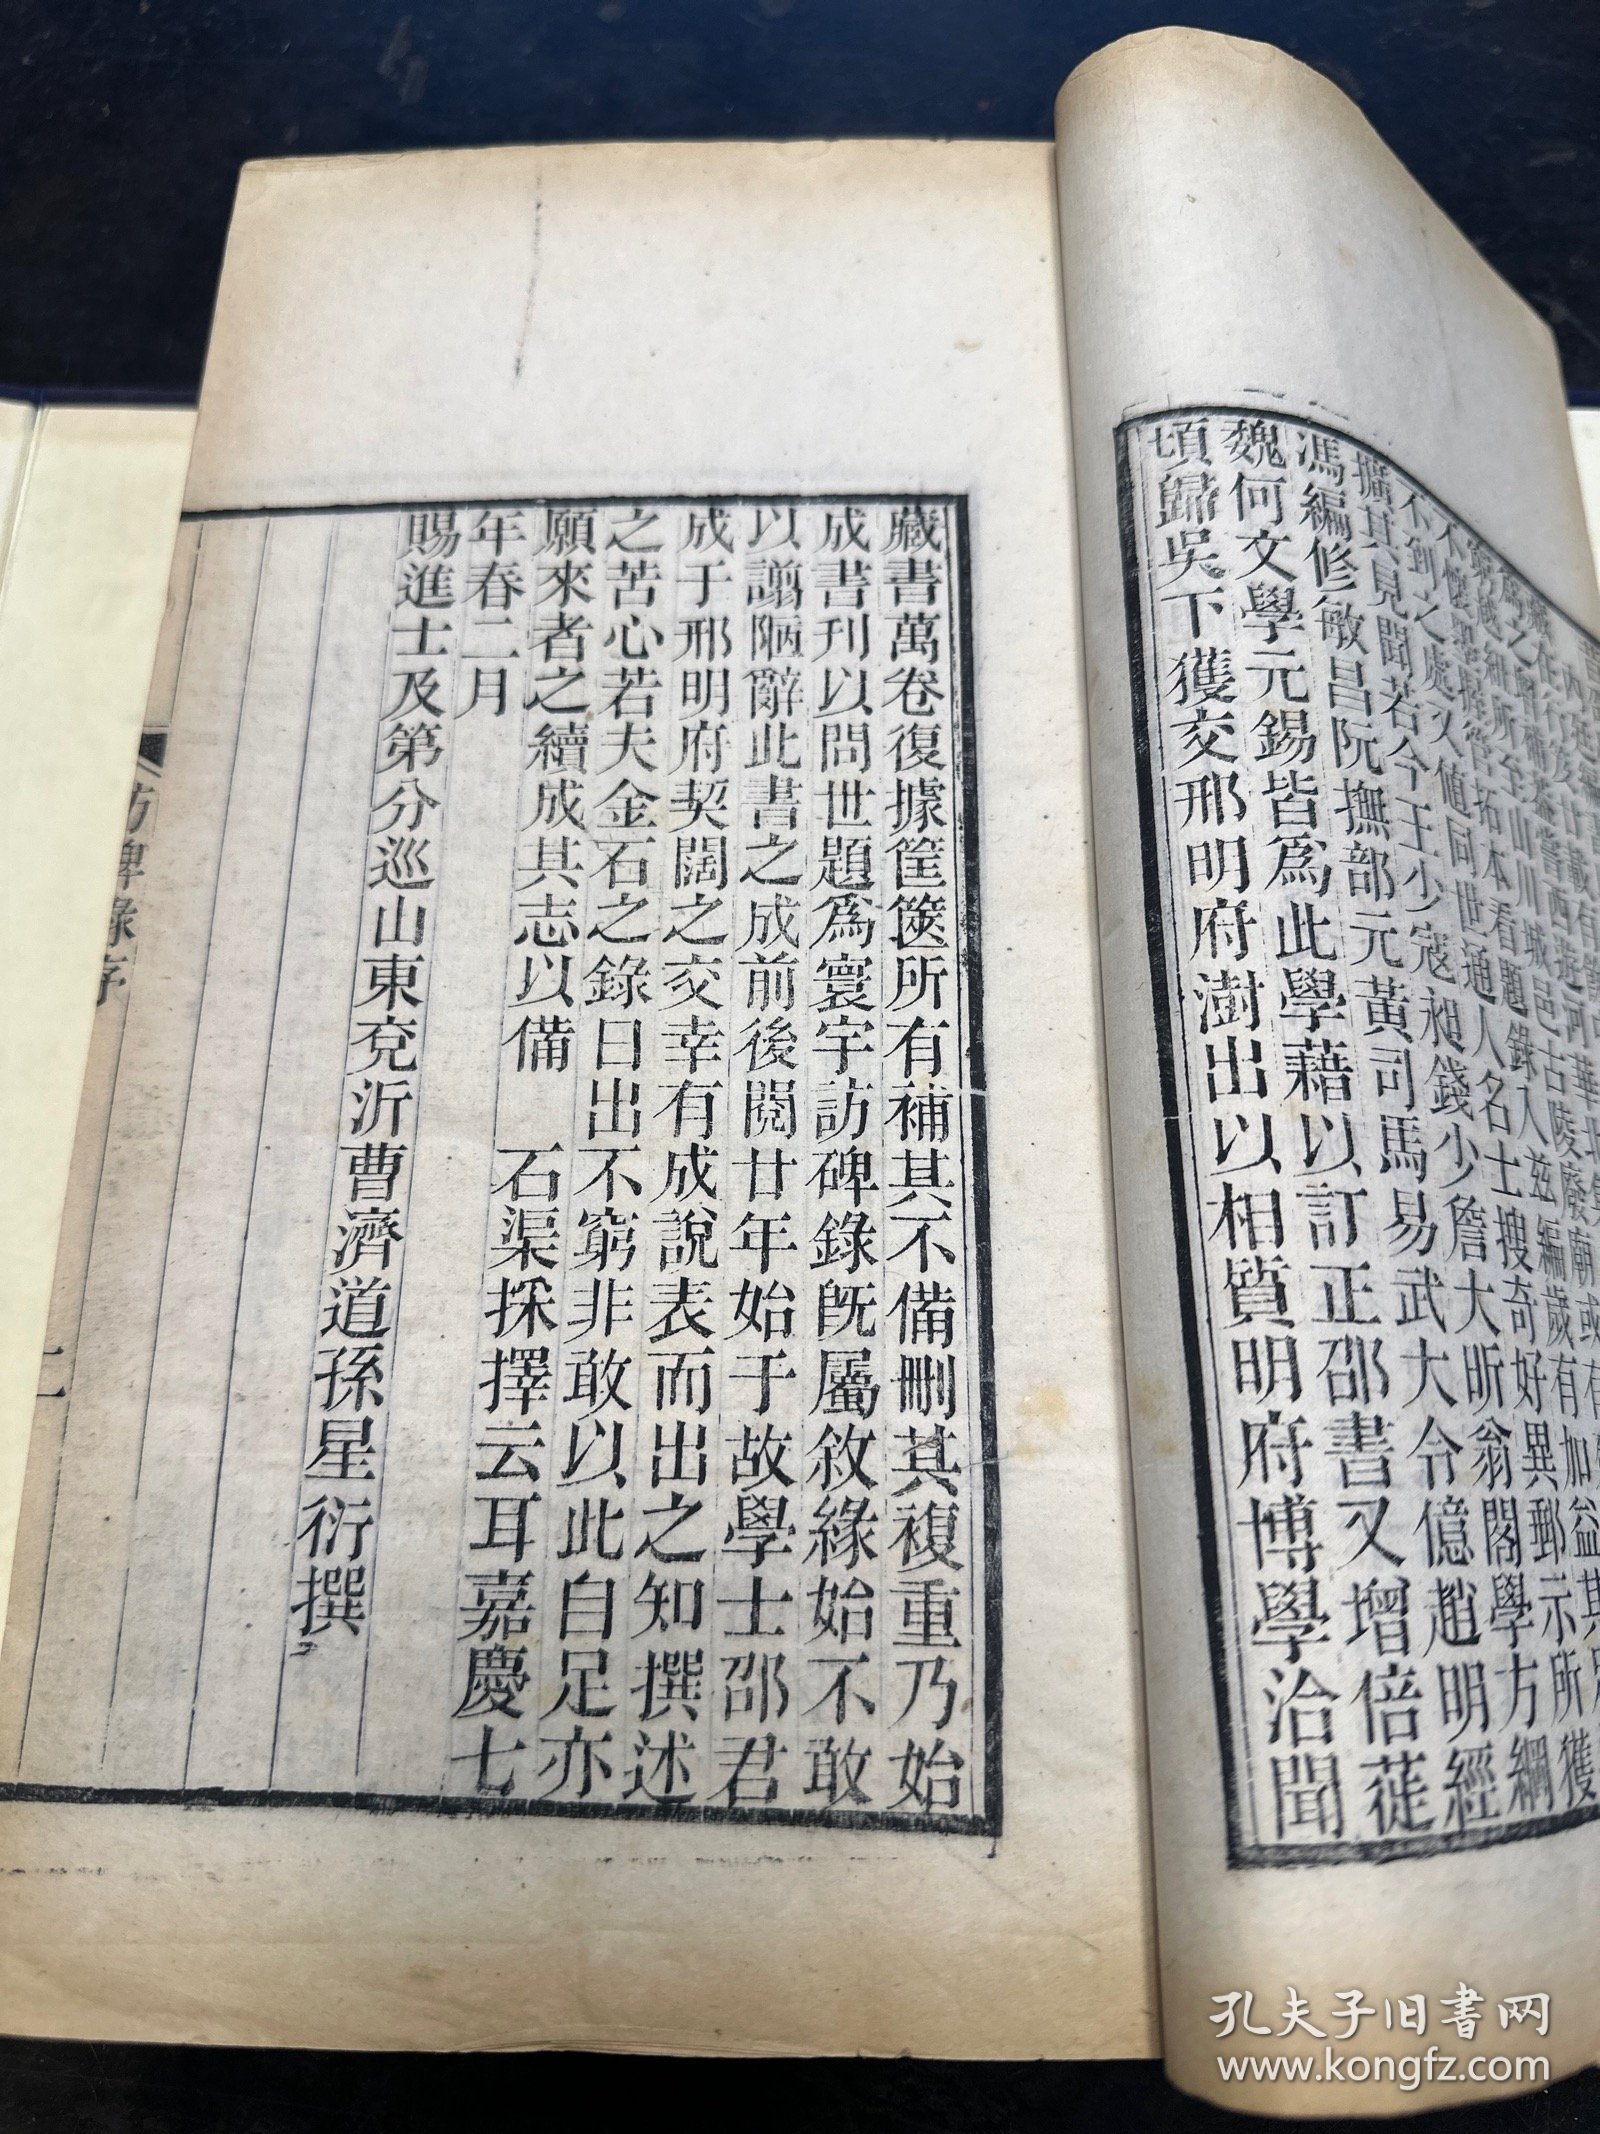 拓本看題錄入茲編歲有加益其
不到之處又值同世通人名士搜奇好異郵示所獲
擴其見聞若今王少寇昶錢少詹大昕翁閣學方綱
馮編修敏昌阮撫部元黃司馬易武大令億趙明經
魏何文學元錫皆爲此學藉以訂正邵書又增倍蓰
頃歸吳下獲交邢明府澍出以相質明府博學洽聞
藏書萬卷復據筐篋所有補其不備刪其複重乃始
成書刊以問世題爲寰宇訪碑錄旣屬敘緣始不敢
以譾陋辭此書之成前後閱廿年始于故學士邵君
成于邢明府契闊之交幸有成說表而出之知撰述
之苦心若夫金石之錄日出不窮非敢以此自足亦
願來者之續成其志以備 石渠採擇云耳嘉慶七
年春二月
賜進士及第分巡山東兗沂曹濟道孫星衍撰
訪碑錄序
二
孔夫子旧书网
www.kongfz.com